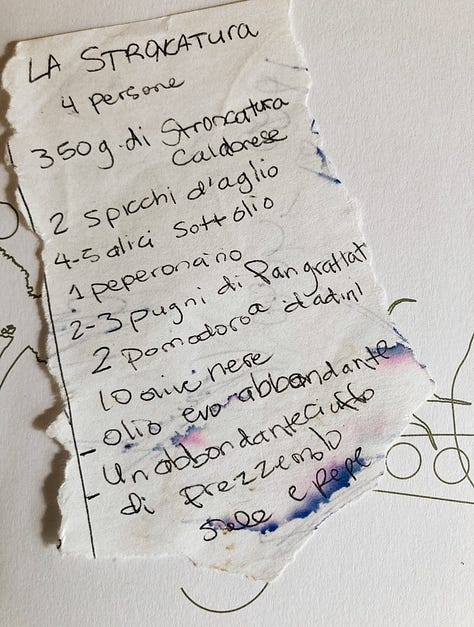 LA STRONCATURA
4 persone
350g. di Stroncatura
Calabrese
2 spicchi d'aglio
4-5 alici sott'olio
1 peperoncino
2-3 pugni di Pangrattat
2 pomodoro
10 olive nere
olio evo abbondante
Un abbondante ciuffo
di Prezzemolo
Sale e Pepe